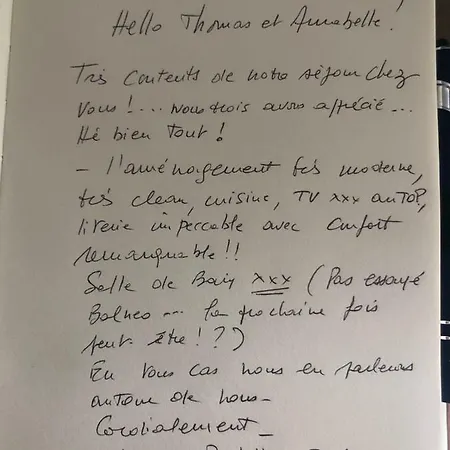 Hello Thomas et Annabelle !
Très contents de notre séjour chez
vous ! ... nous trois avons apprécié ...
Hé bien tout !
- l'aménagement très moderne,
très clean, cuisine, TV xxx
literie impeccable avec confort
remarquable !!
Salle de Bain xxx (Pas essayé
Balnéo ... la prochaine fois
peut-être ! ?)
En tous cas nous en parlerons
autour de nous -
Cordialement -